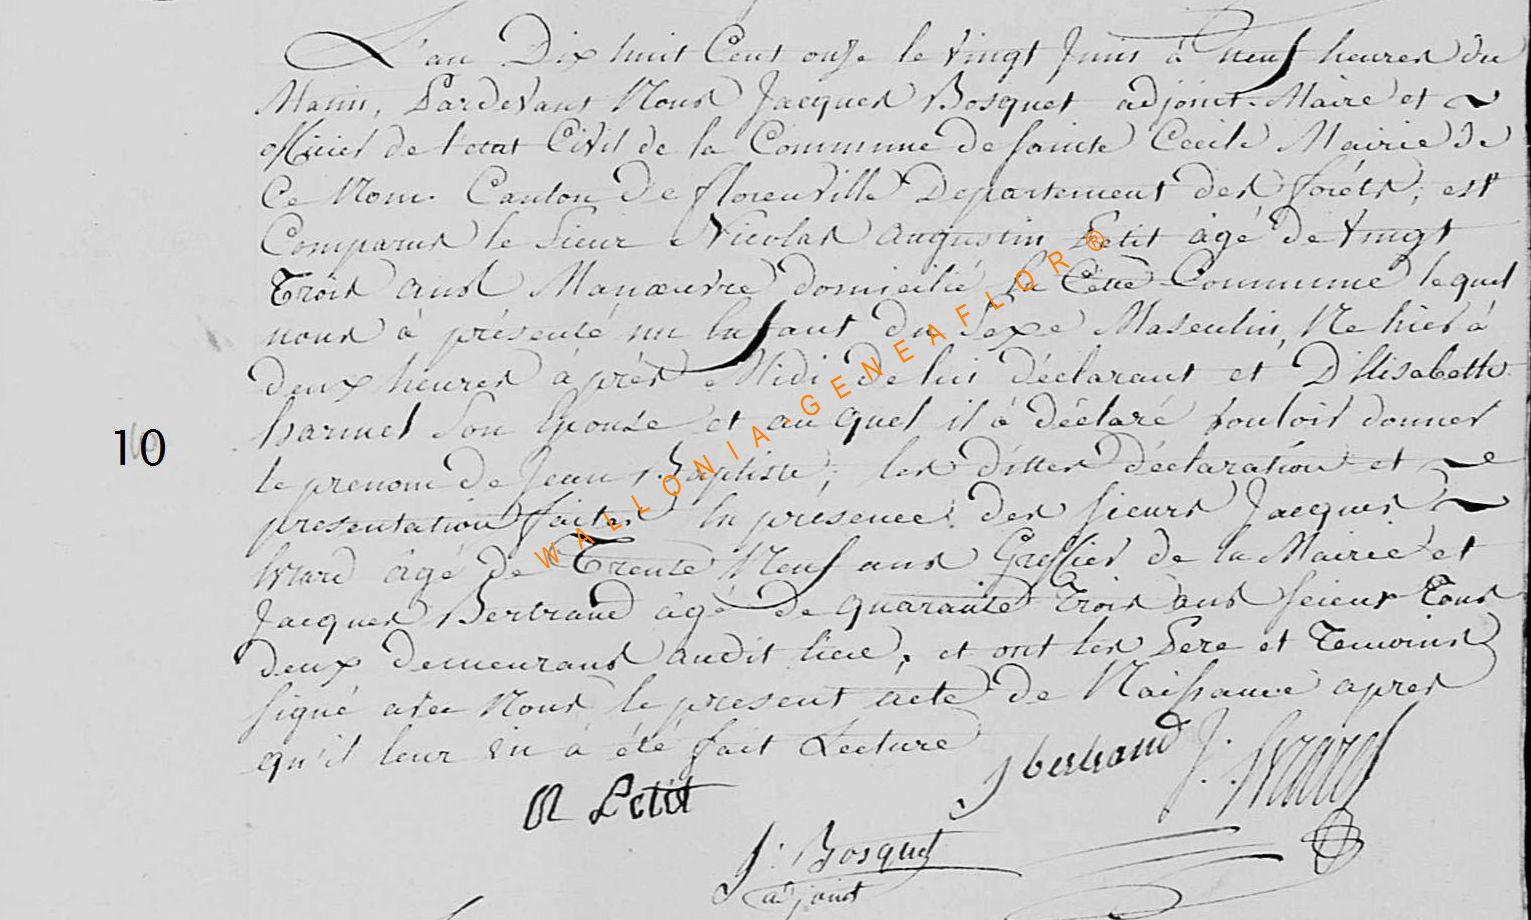 L'an Dix huit Cent onze le vingt Juin à neuf heures du
Matin, Pardevant Nous Jacques Bosquet adjoint-Maire et
officier de l'etat Civil de la Commune de Sainte Cecile Mairie de
Ce Nom. Canton de florenville Departement des forêts, est
Comparus le Sieur Nicolas Augustin Petit âgé de vingt
Trois ans Manœuvre domicilié Cette Commune lequel
nous à présenté un Enfant du Sexe Masculin, Ne hier à
deux heures après Midi De lui déclarant et D'Elisabette
harmel Son Epouse et au quel il à déclaré vouloir donner
le prenom de Jean Baptiste, les dittes déclaration et
presentation faites En présence des Sieurs Jacques
Evrard âgé de Trente Neuf ans Greffier de la Mairie et
Jacques Bertrand âgé de quarante Trois ans Scieur Tous
deux demeurans audit lieu, et ont les Pere et Temoins
Signé avec Nous le present acte de Naissance apres
qu'il leur En à été fait Lecture
J bertrand J. Evrard
N Petit
J. Bosquet
adjoint
10
WALLONIA-GENEAFLOR ®